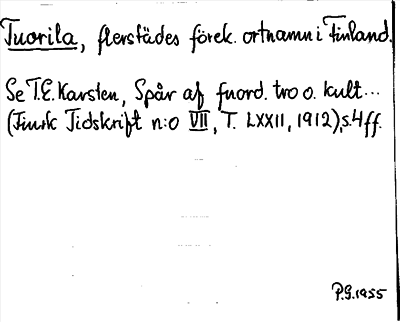 Tuorila, flerstädes förek. ortnamn i Finland.
Se T.E. Karsten, Spår af fnord. tro o. kult...
(Finsk Tidskrift n:o VII, T. LXXII, 1912), s. 4 ff.
P.G. 1955